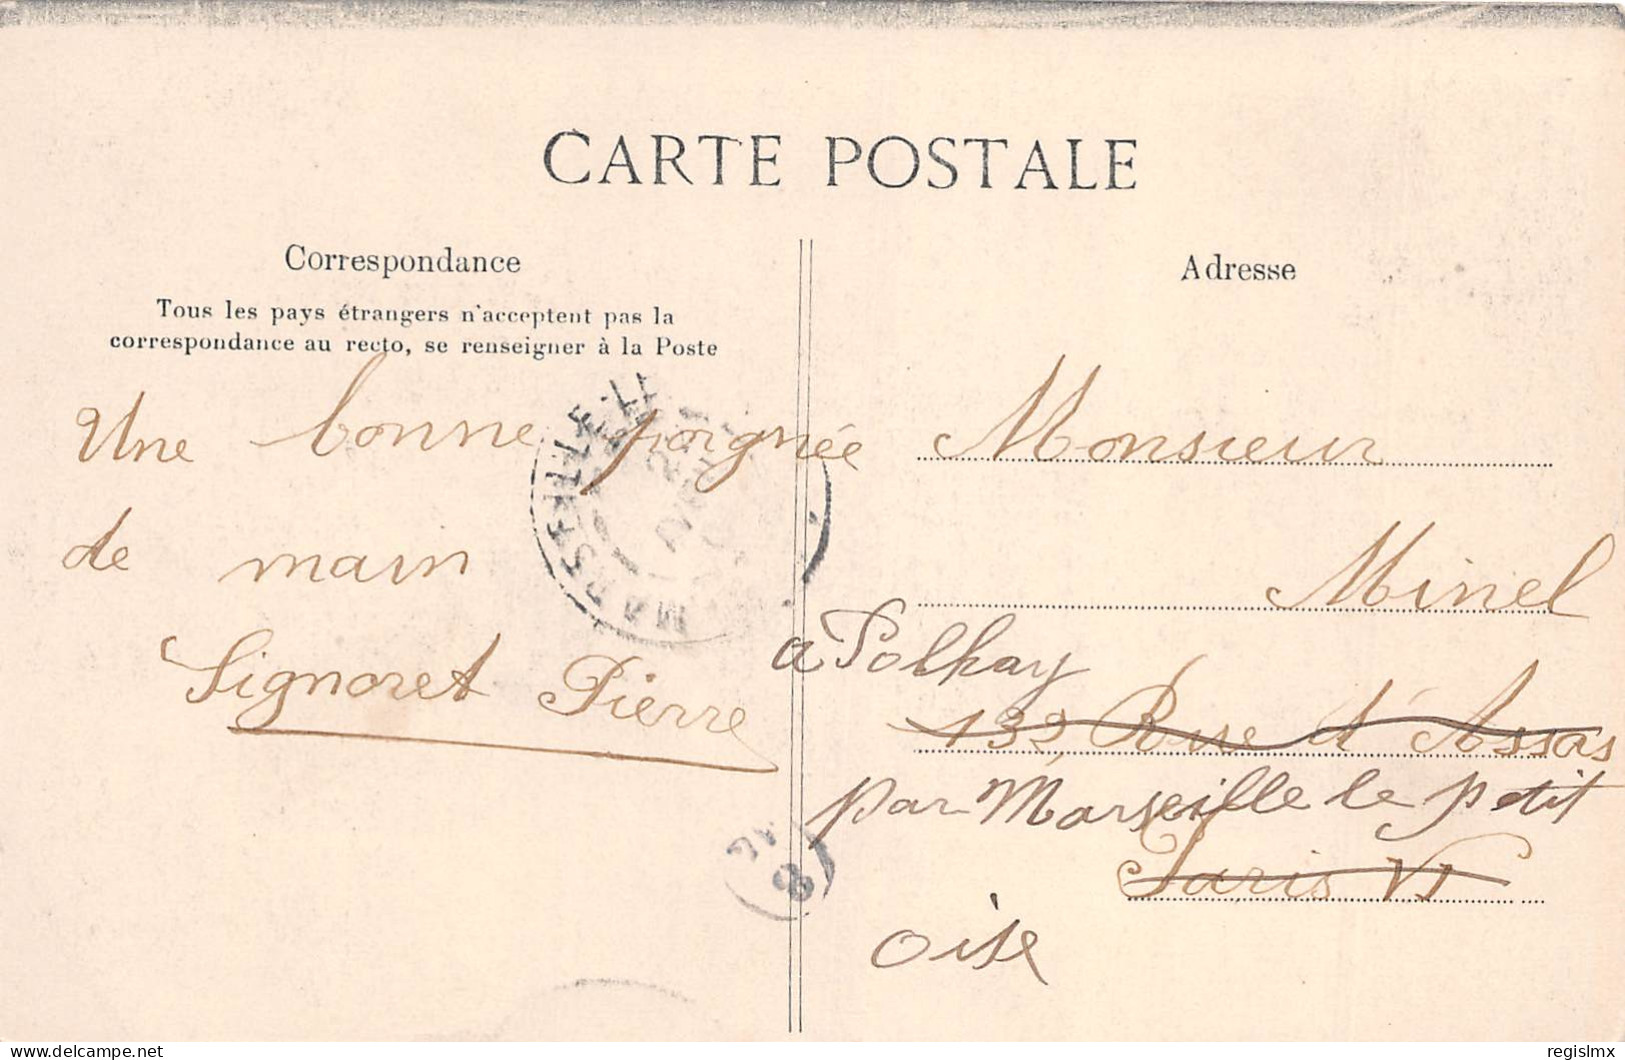 CARTE POSTALE
Correspondance
Tous les pays étrangers n'acceptent pas la
correspondance au recto, se renseigner à la Poste
Une bonne poignée
de main
Signoret Pierre
Adresse
Monsieur
Minel
a Polhay
132 Rue d'Assas
par Marseille le petit
Paris VI
oise
MARSEILLE-LE
delcampe.net
regislmx